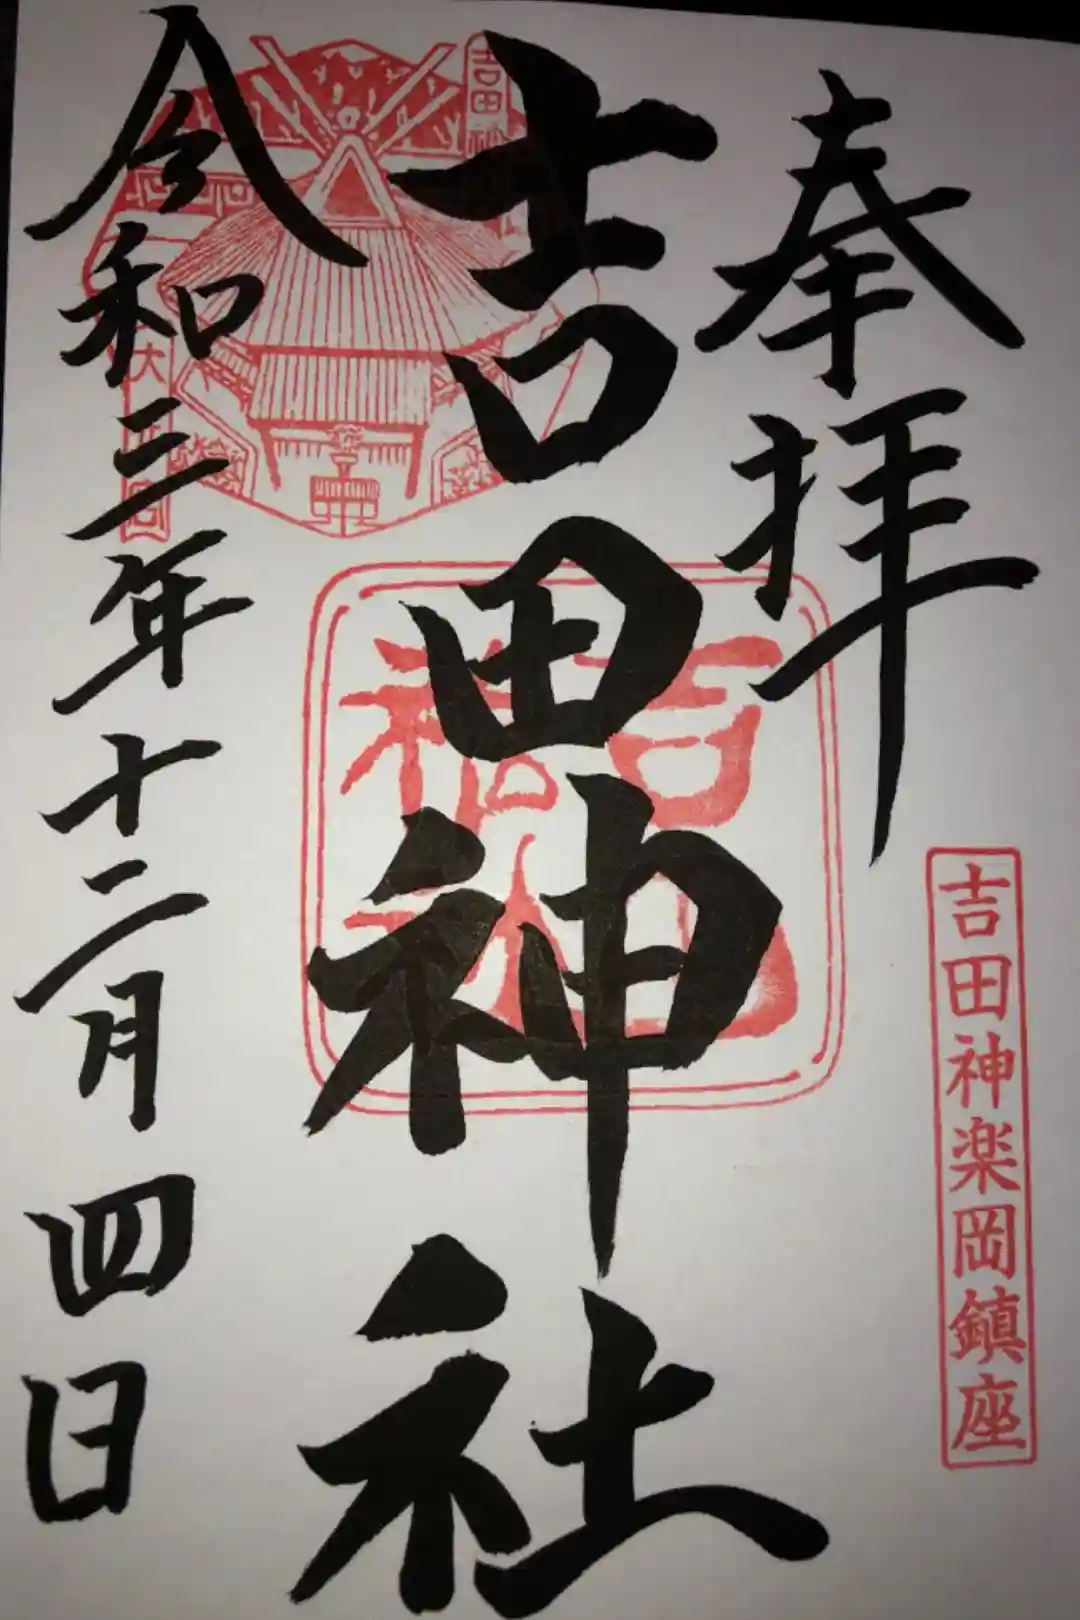 奉拝
吉田神楽岡鎮座
吉田神社
吉田神社
令和三年十二月四日